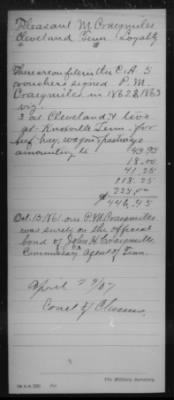 Pleasant M Craigmiles
Cleveland Tenn Loyalty
There are on file in the C.A. 5
vouchers signed P. M.
Craigmiles in 1862 & 1863
viz.
3 at Cleveland & two
at Knoxville Tenn. for
beef, hay, wagons, pasturage
amounting to 43.95
18.00
41.25
118.25
225.00
$ 446.45
Oct. 15, 1861, one P. M. Craigmiles
was surety on the official
bond of John H. Craigmiles
Commissary Agent of Tenn.
April 29/07
Court of Claims
The Military Secretary.